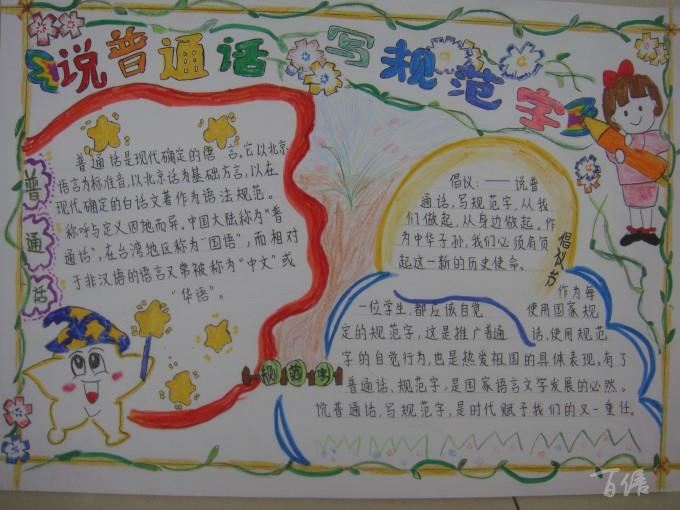 说普通话 写规范字
普通话
普通话是现代确定的语言。它以北京
语言为标准音,以北京话为基础方言,以在
现代确定的白话文著作为语法规范。
称呼与定义因地而异。中国大陆称为“普
通话”,在台湾地区称为“国语”,而相对
于非汉语的语言又常被称为“中文”或
“华语”。
规范字
倡议书
倡议:——说普
通话,写规范字,从我
们做起,从身边做起。作
为中华子孙,我们必须有负
起这一新的历史使命。
作为每
一位学生,都应该自觉 使用国家规
定的规范字,这是推广普通 话,使用规范
字的自觉行为,也是热爱祖国的具体表现。有了
普通话、规范字,是国家语言文字发展的必然。
说普通话,写规范字,是时代赋予我们的又一重任。